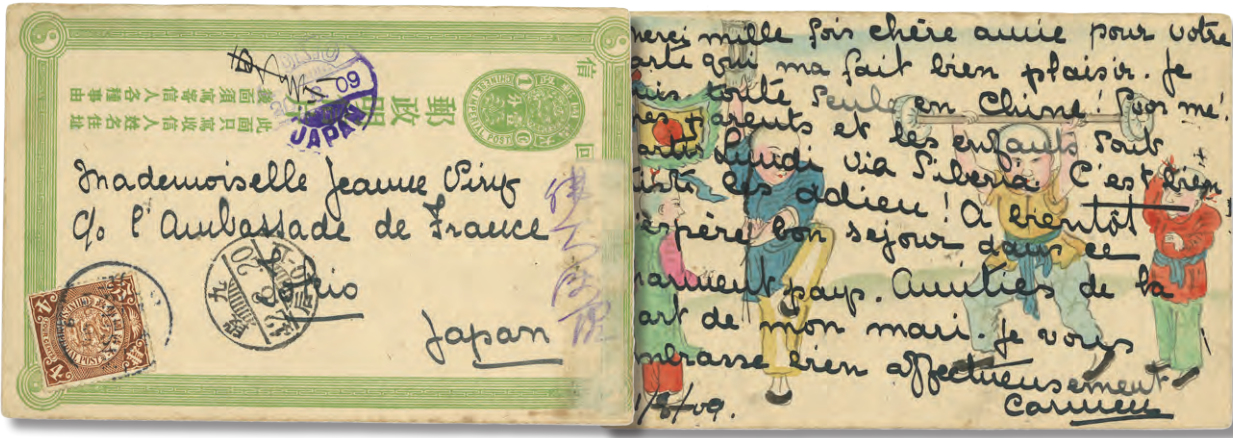 信
郵政明
此面只寫收信人姓名住址
後面須寫寄信人各種事由
CHINESE IMPERIAL POST
1
09
JAPAN
Mademoiselle Jeanne
c/o l'Ambassade de France
Tokio
Japan
回
merci mille fois chère amie pour votre
carte qui ma fait bien plaisir. Je
suis toute seule en Chine! Poor me!
mes parents et les enfants sont
partis Lundi via Siberia. C'est bien
triste les adieu! A bientôt
j'espère bon sejour dans ce
charmant pays. Amitiés de la
part de mon mari. Je vous
embrasse bien affectueusement
Carmen
/8/09.